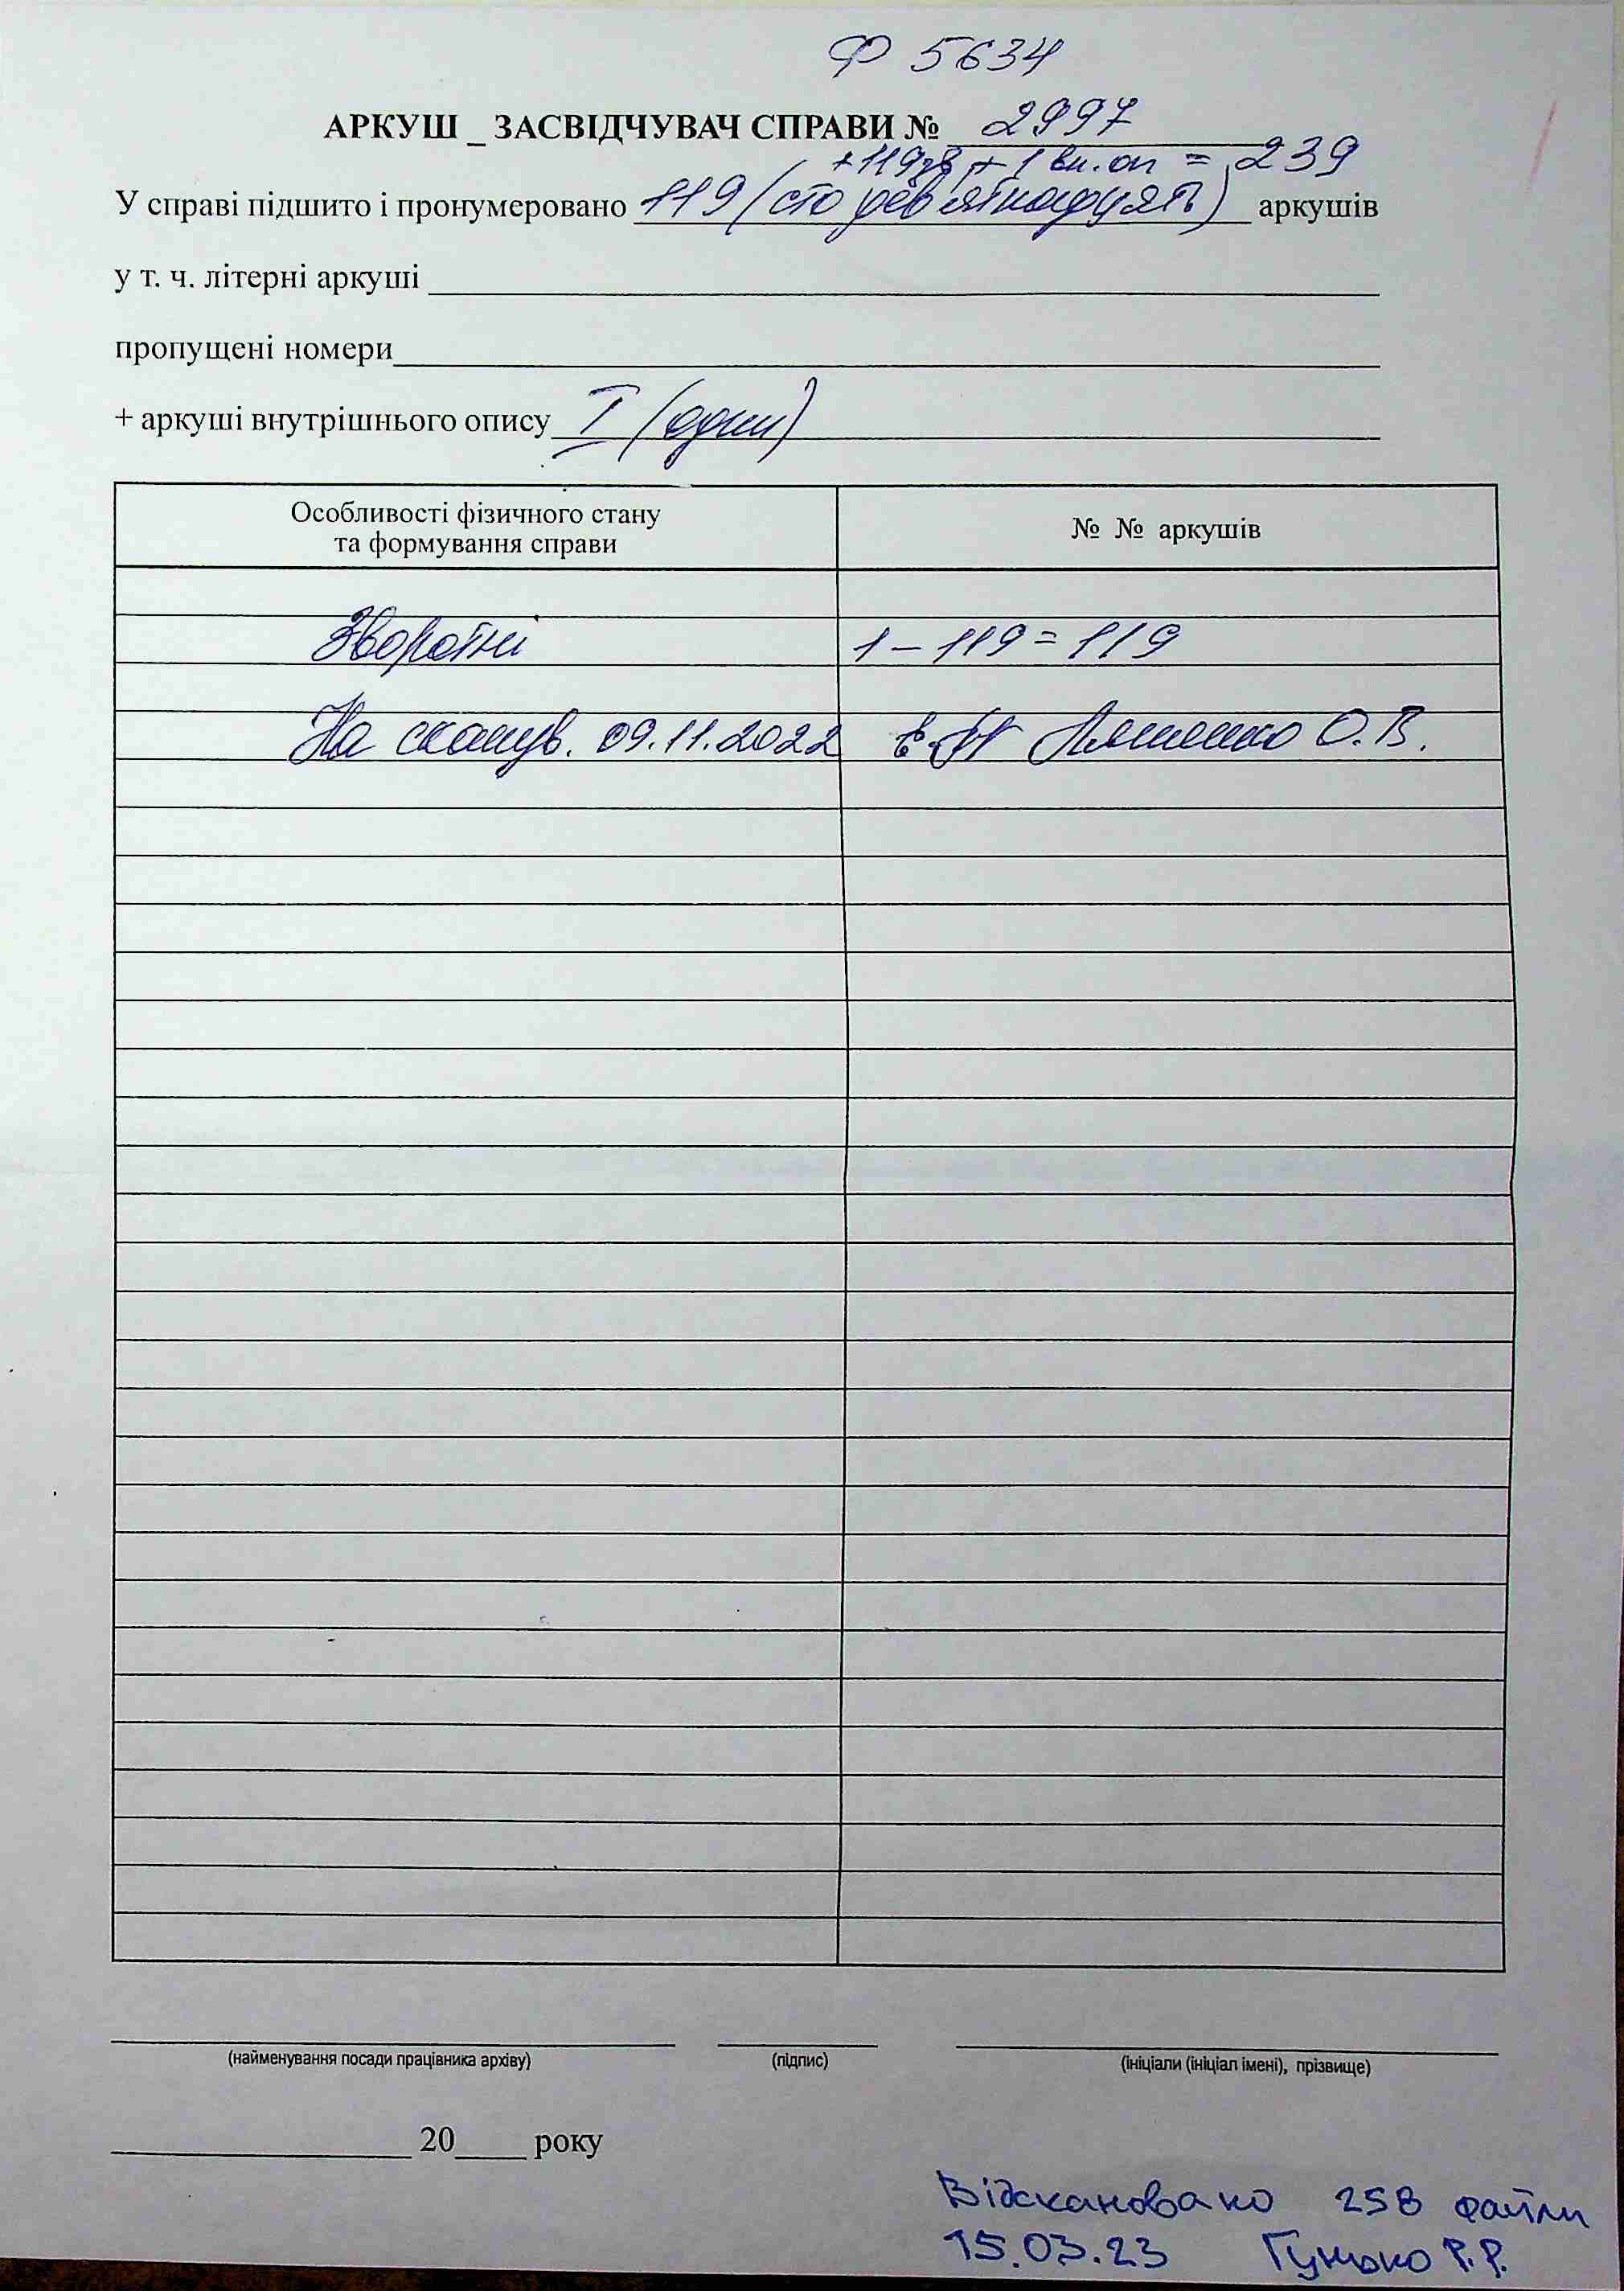 Ф 5634
АРКУШ _ ЗАСВІДЧУВАЧ СПРАВИ № 2997
+119зв + 1 вн.оп = 239
У справі підшито і пронумеровано 119 (сто дев'ятнадцять) аркушів
у т. ч. літерні аркуші
пропущені номери
+ аркуші внутрішнього опису I (один)
Особливості фізичного стану та формування справи
№ № аркушів
Зворотні 1 – 119 = 119
На сканув. 09.11.2022 Ляшенко О.В.
(найменування посади працівника архіву) (підпис) (ініціали (ініціал імені), прізвище)
20 року
Відскановано 258 файли
15.03.23 Гунько Р.Р.